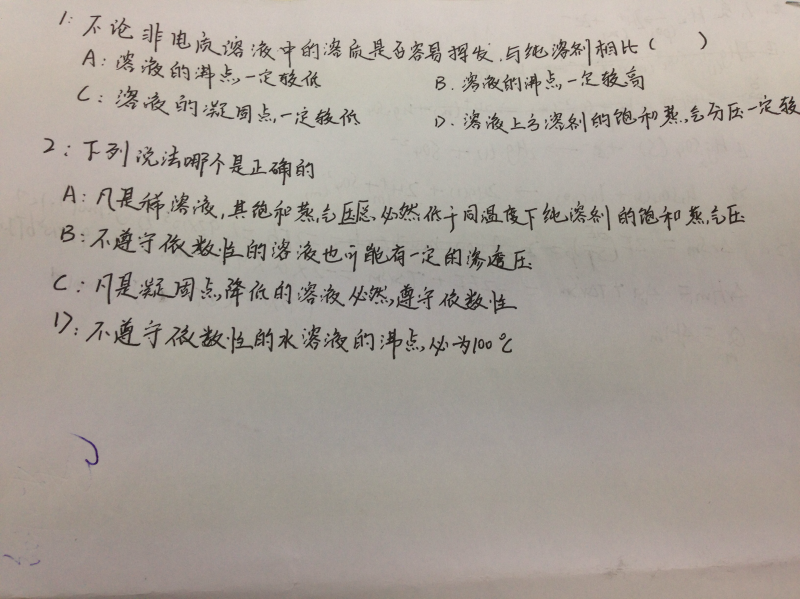 1: 不论非电质溶液中的溶质是否容易挥发,与纯溶剂相比( )
A: 溶液的沸点,一定较低 B. 溶液的沸点,一定较高
C: 溶液的凝固点,一定较低 D. 溶液上方溶剂的饱和蒸气分压一定较
2: 下列说法哪个是正确的
A: 凡是稀溶液,其饱和蒸气压必然低于同温度下纯溶剂的饱和蒸气压
B: 不遵守依数性的溶液也可能有一定的渗透压
C: 凡是凝固点降低的溶液必然遵守依数性
D: 不遵守依数性的水溶液的沸点必为100℃